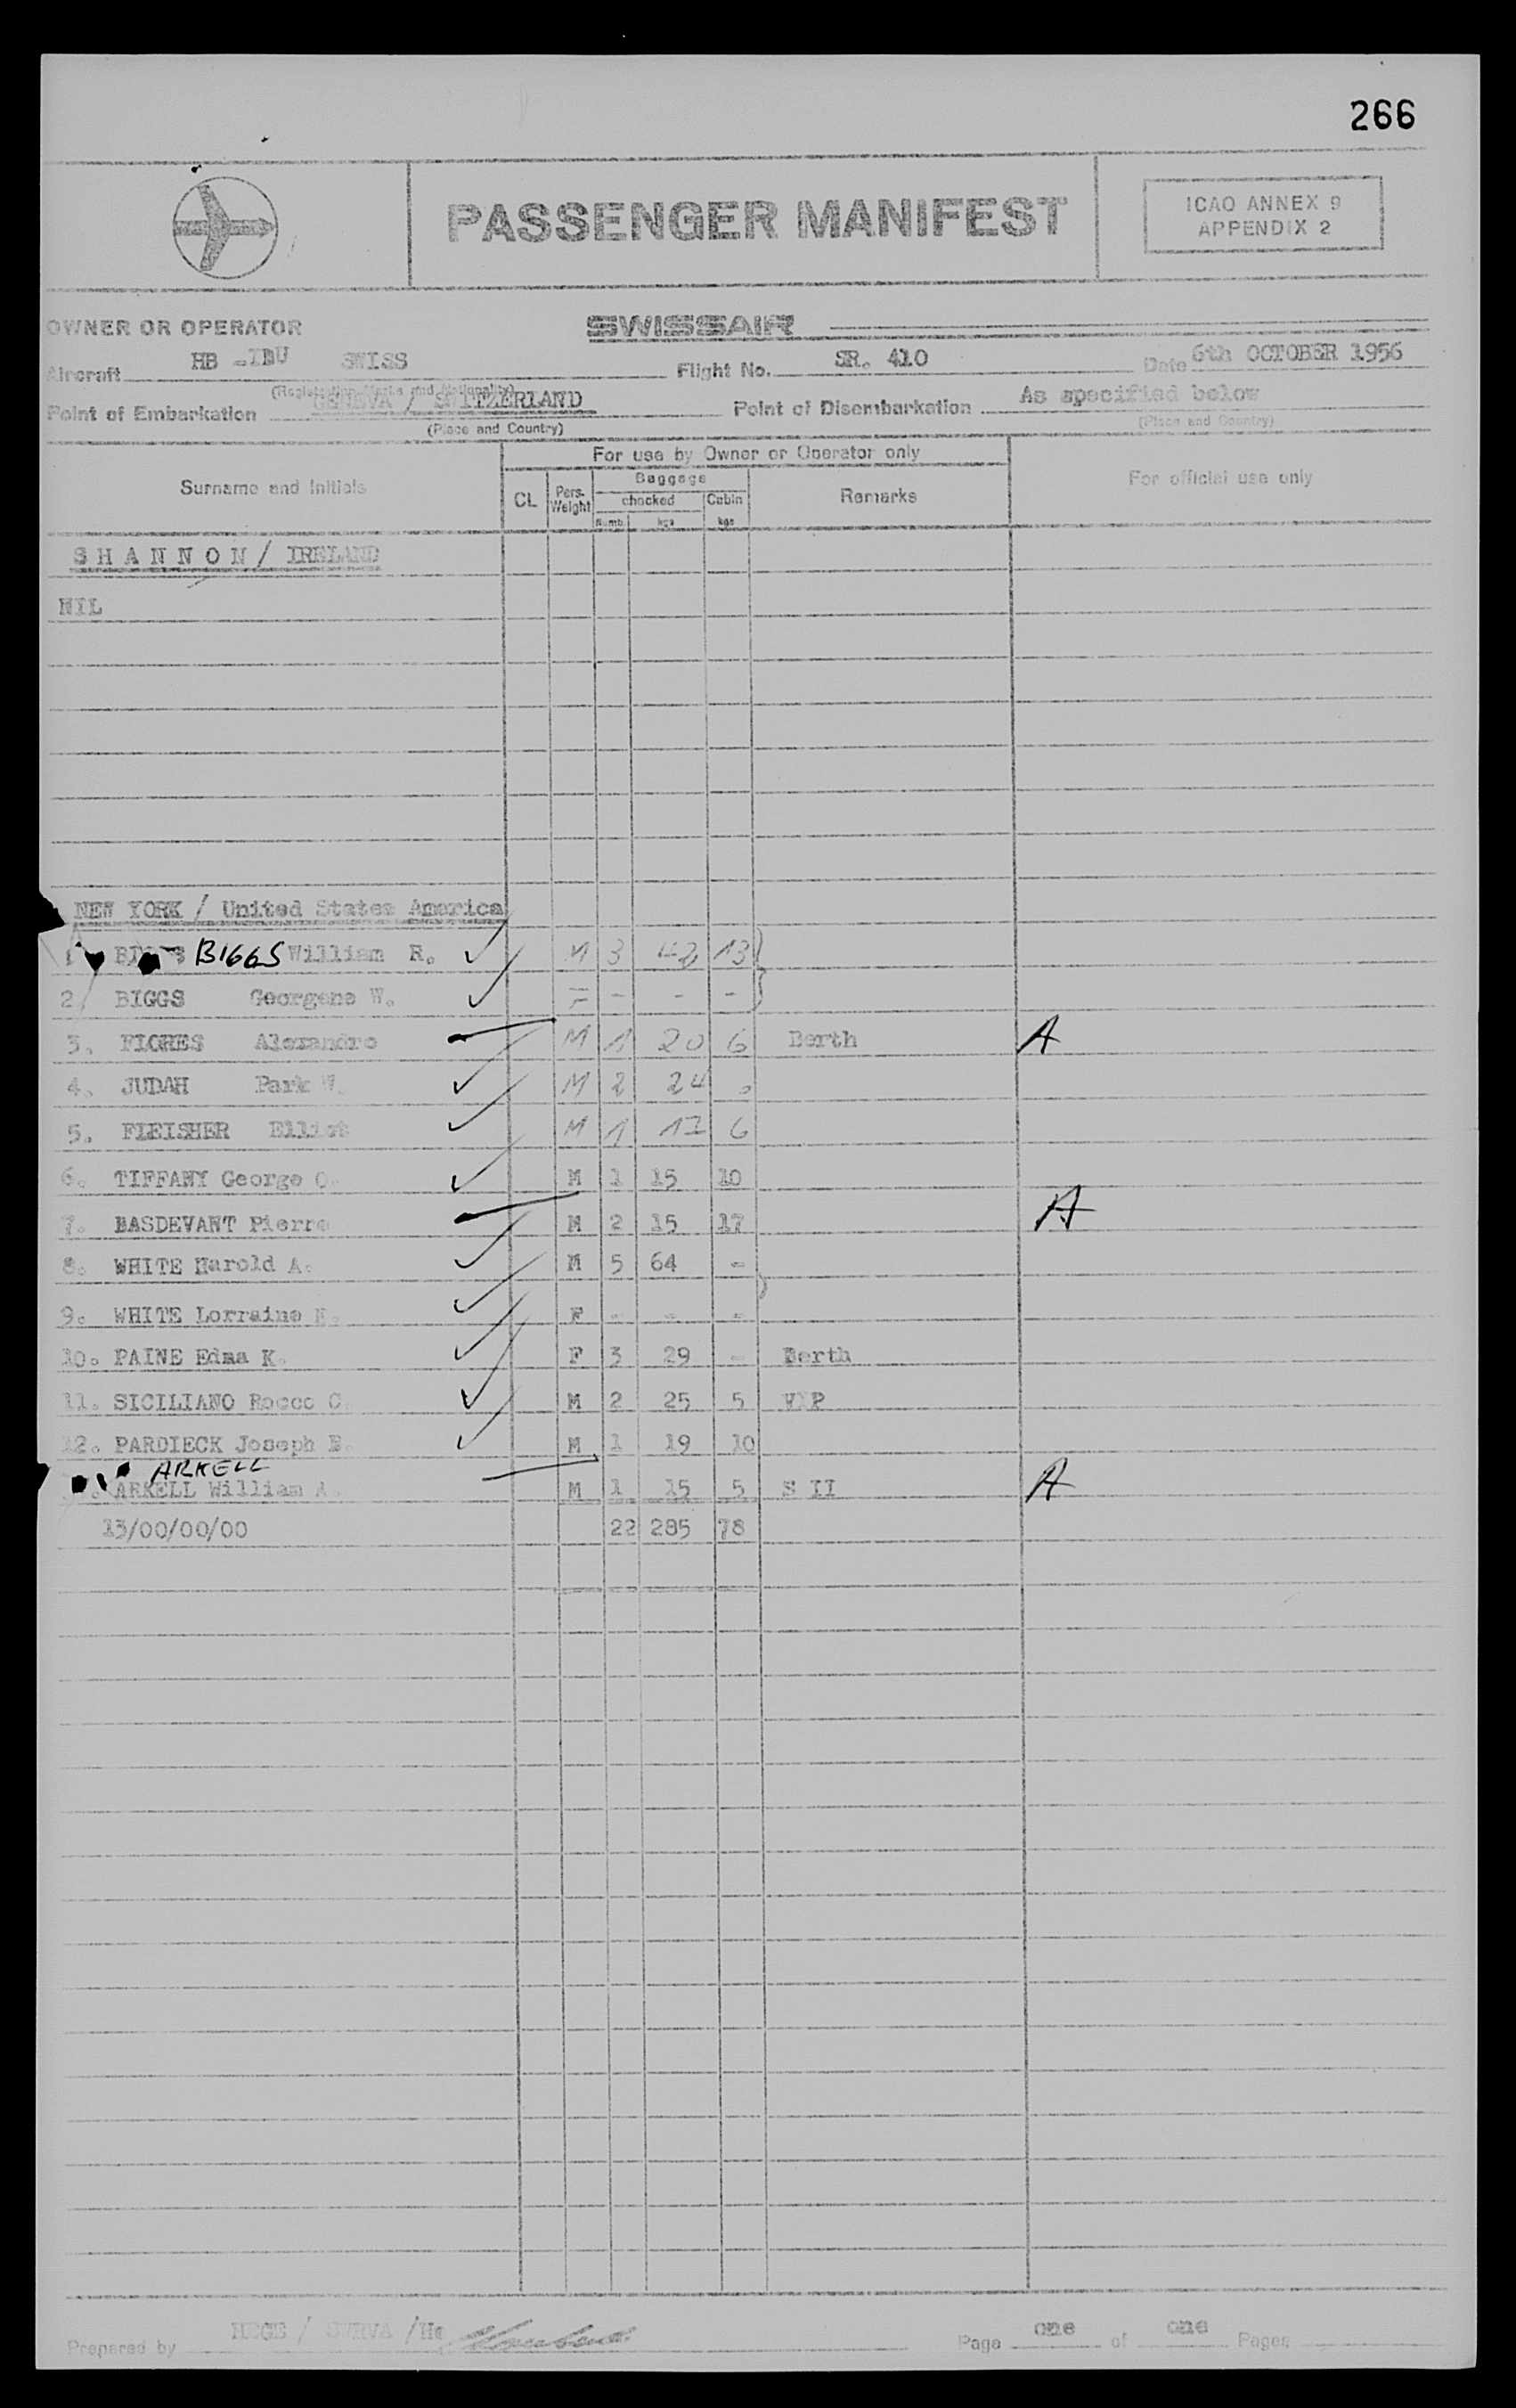 266
PASSENGER MANIFEST
ICAO ANNEX 9
APPENDIX 2
OWNER OR OPERATOR SWISSAIR
Aircraft HB -IBU SWISS Flight No. SR. 410 Date 6th OCTOBER 1956
(Registration Marks and Nationality)
Point of Embarkation GENEVA / SWITZERLAND Point of Disembarkation As specified below
(Place and Country) (Place and Country)
Surname and Initials For use by Owner or Operator only For official use only
CL Pers. Weight Baggage Remarks
checked Cabin
Numb. kgs kgs
SHANNON / IRELAND
NIL
NEW YORK / United States America
1 BIGGS William R. M 3 42 13
2 BIGGS Georgene W. F - - -
3. FLORES Alexandro M 1 20 6 Berth A
4. JUDAH Park W. M 2 24
5. FLEISHER Elliot M 1 17 6
6. TIFFANY George O. M 1 15 10
7. BASDEVANT Pierre M 2 15 17 A
8. WHITE Harold A. M 5 64 -
9. WHITE Lorraine F - - -
10. PAINE Edna K. F 3 29 - Berth
11. SICILIANO Rocco C. M 2 25 5 VIP
12. PARDIECK Joseph E. M 1 19 10
ARKELL
ARKELL William A. M 1 15 5 S II A
13/00/00/00 22 285 78
Prepared by Page one of one Pages